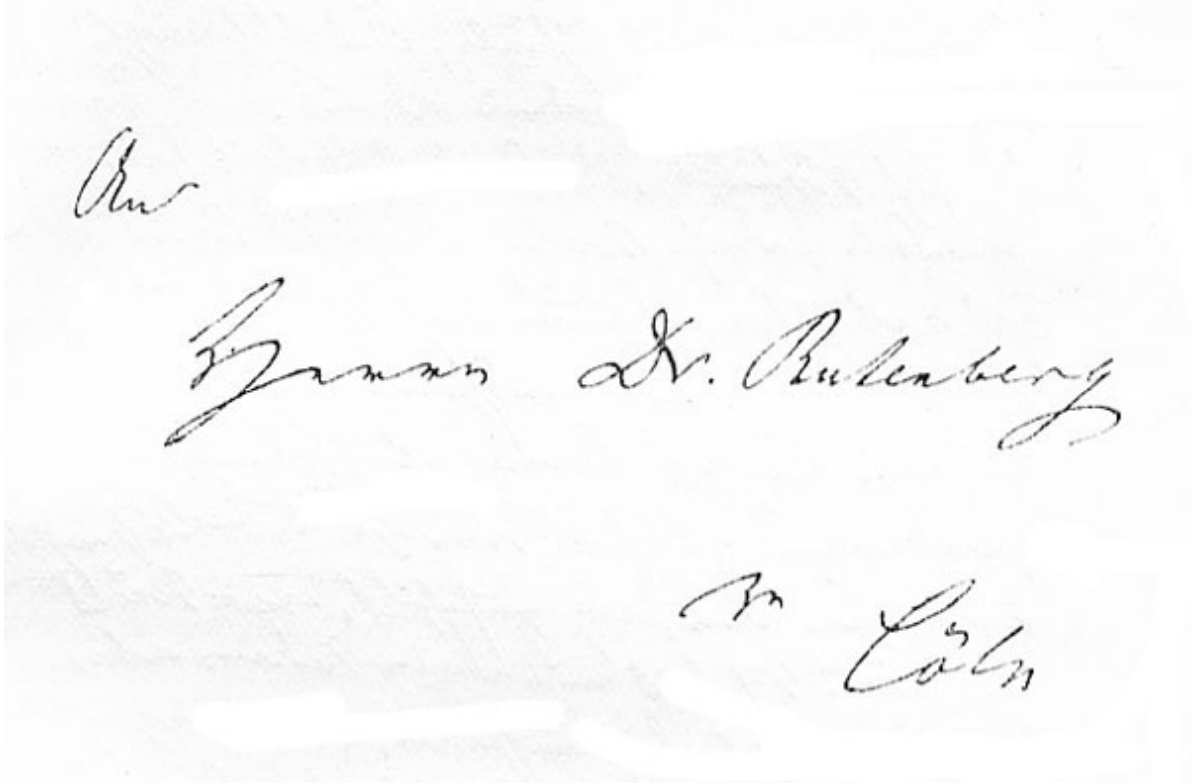 An
Herrn Dr. Rutenberg
in Cöln